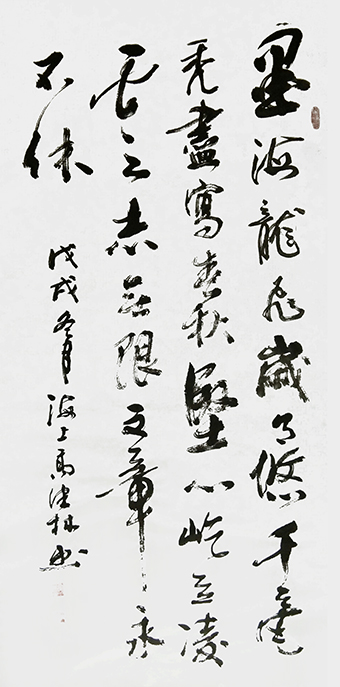 墨海龍飛歲月悠千毫
禿盡寫春秋堅心屹立凌
雲志無限文章永
不休
戊戌冬月海上馬林書